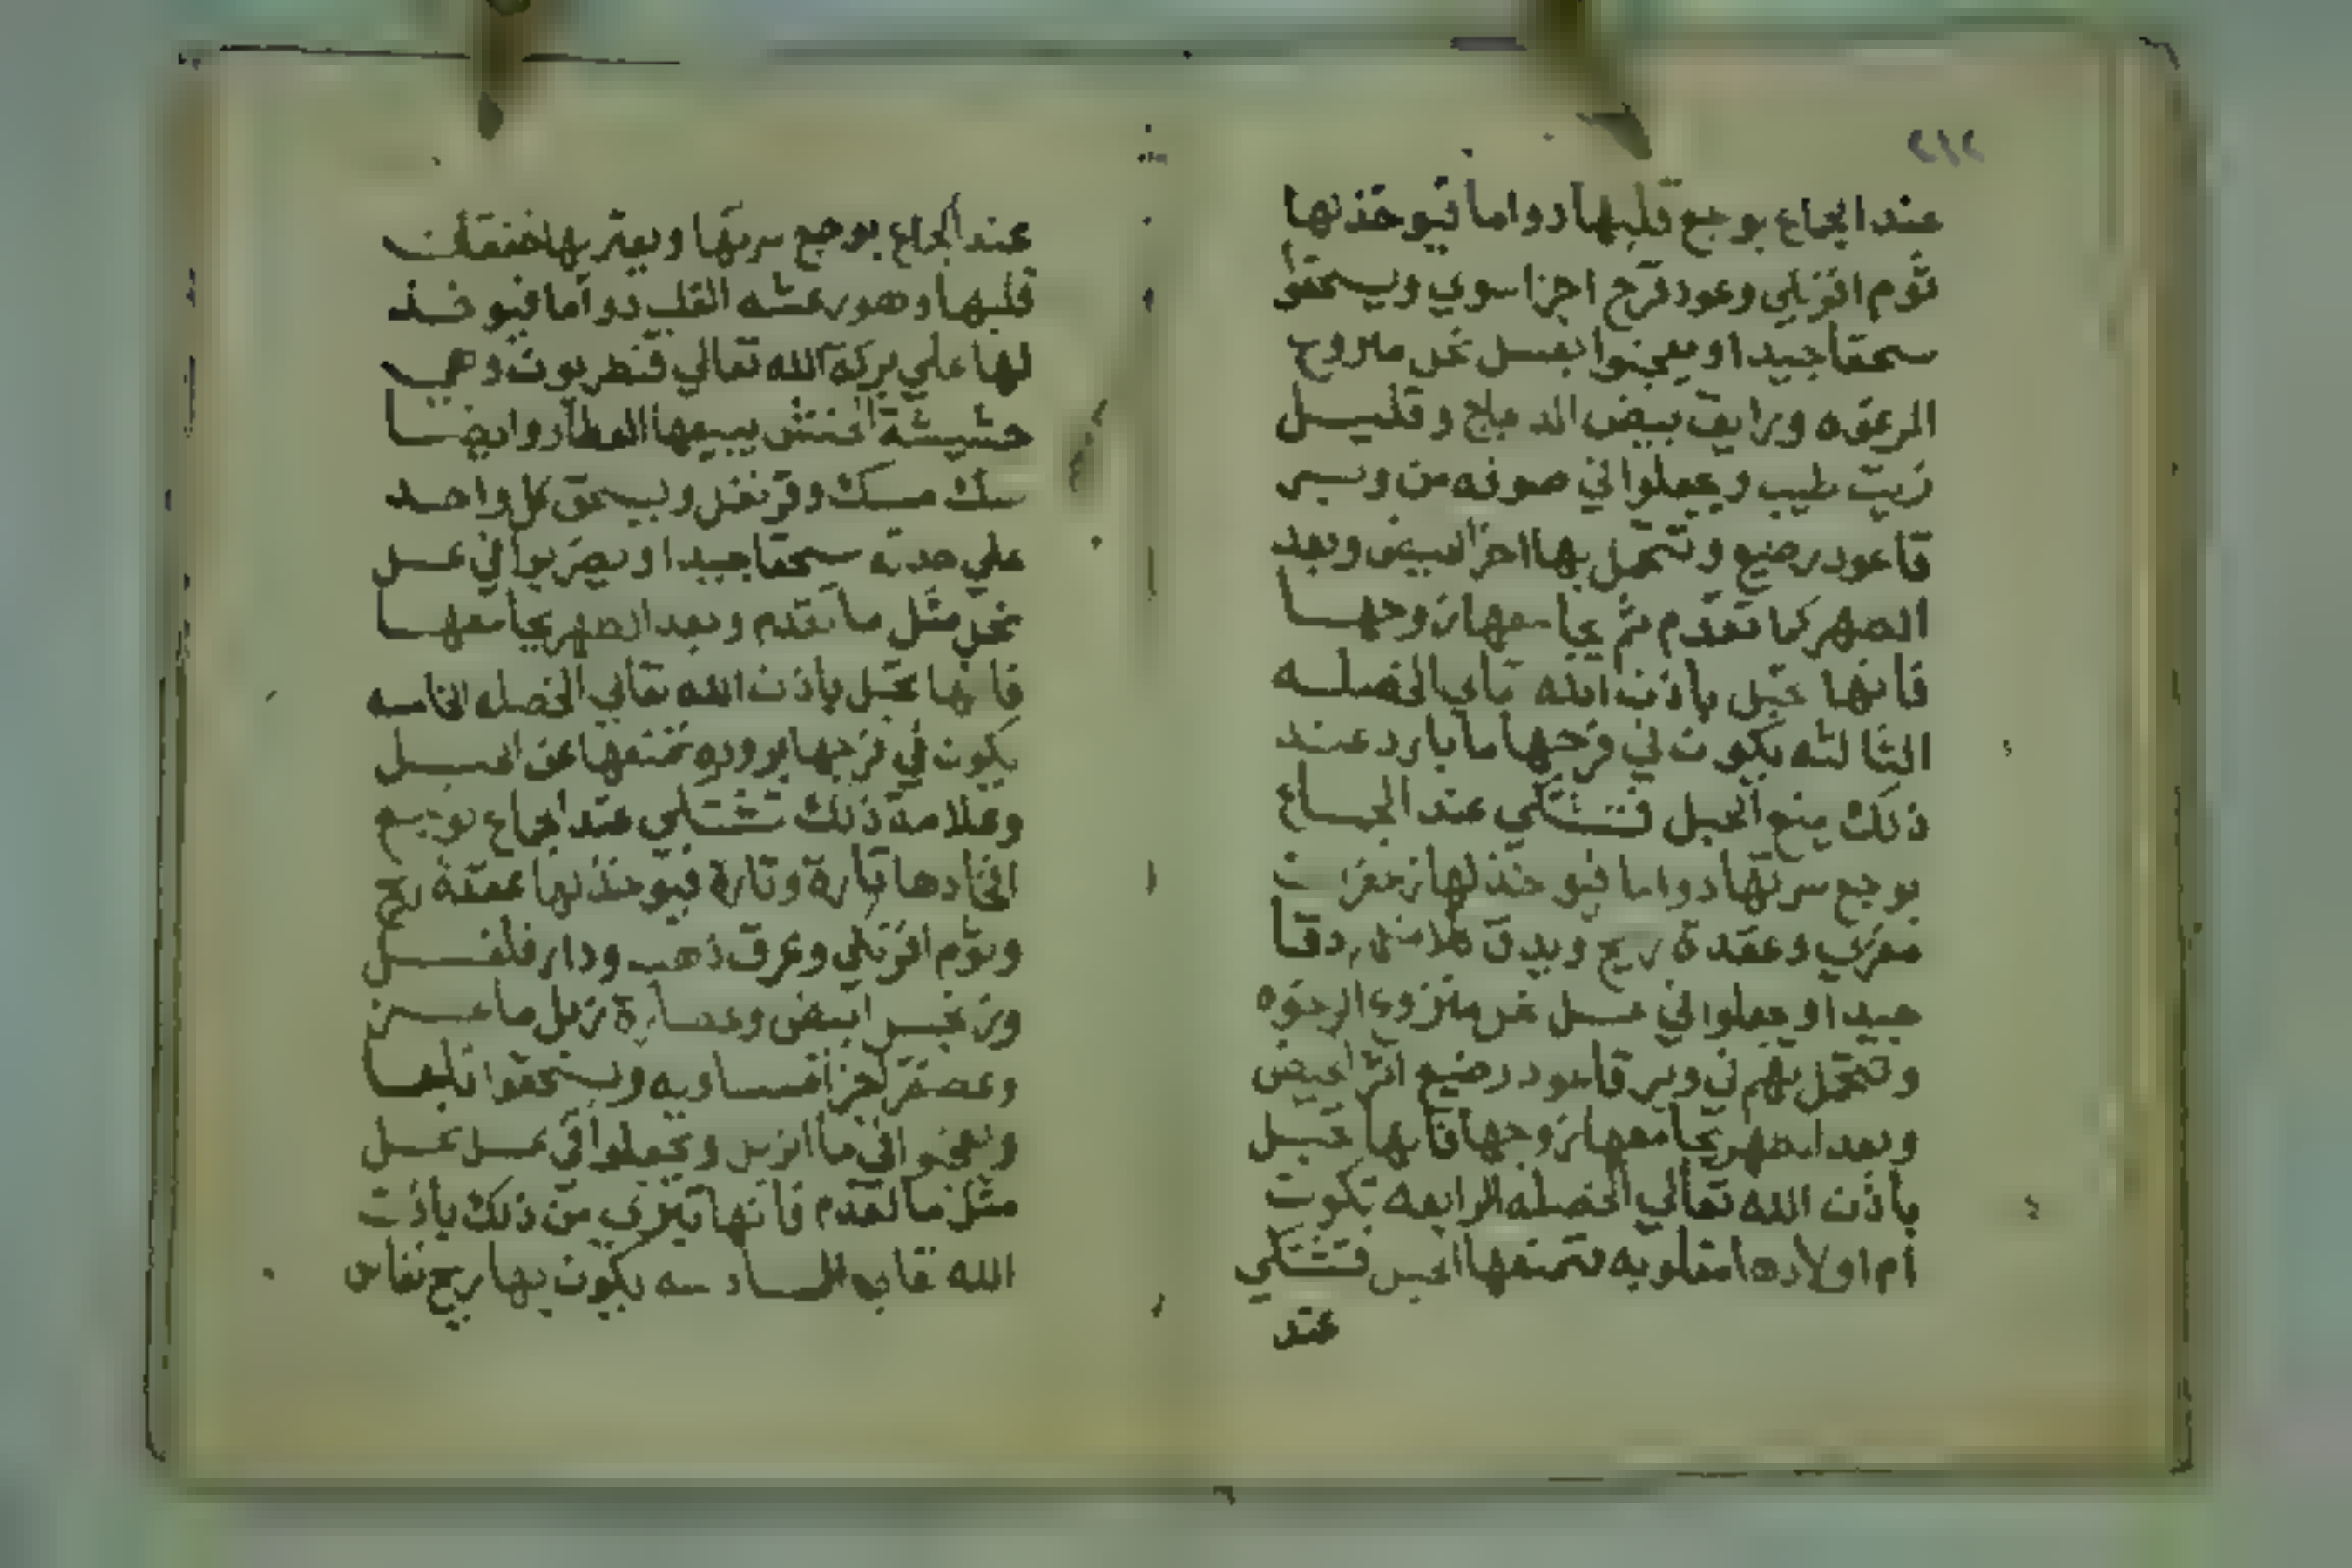 ٢١٢
عند الجماع بوجع قلبها دواها فيوخذ لها
توم افرنجي وعود قرح اجزا سوي ويسحقوا
سحقا جيدا ويعجنوا بعسل نحل منزوع
الرعوه ورايق بيض الدجاج وقليل
زيت طيب ويجعلوا في صوفه من وبر
قاعود رضيع وتتحمل بها اخر الحيض وبعد
الطهر كما تقدم ثم يجامعها زوجها
فانها تحبل باذن الله تعالي الخصله
الثالثه يكون في فرجها ماء بارد عند
ذلك يمنع الحبل فتشتكي عند الجماع
بوجع سرتها دواها فيوخذ لها زعفران
مغربي وعقدة ريح ويدق كلا منهم دقا
جيدا ويجعلوا في عسل نحل منزوع الرعوه
وتتحمل بهم في وبر قاعود رضيع اثر الحيض
وبعد الطهر يجامعها زوجها فانها تحبل
باذن الله تعالي الخصله الرابعه تكون
ام اولادها مقلوبه تمنعها الحبل فتشتكي
عند
عند الجماع بوجع سرتها ويعتريها خفقان
قلبها وهو رعشه القلب دواها فيوخذ
لها علي بركة الله تعالي قنطريون وهي
حشيشة الحنش يبيعها العطار وايضا
سك مسك وقرنفل ويسحق كل واحد
علي حدته سحقا جيدا ويضربوا في عسل
نحل مثل ما تقدم وبعد الطهر يجامعها
فانها تحبل باذن الله تعالي الخصله الخامسه
يكون في فرجها بروده تمنعها عن الحبل
وعلامة ذلك تشتكي عند الجماع بوجع
افخادها تارة وتارة فيوخذ لها عقدة ريح
وتوم افرنجي وعرق دهب ودار فلفل
وزنجبيل ابيض وعصارة زبل ماعز
وعصفر اجزا متساويه ويسحقوا ناعما
ويعجنوا في ماء الزيت ويجعلوا في عسل نحل
مثل ما تقدم فانها تبري من ذلك باذن
الله تعالي السادسه يكون بها ريح نفاس